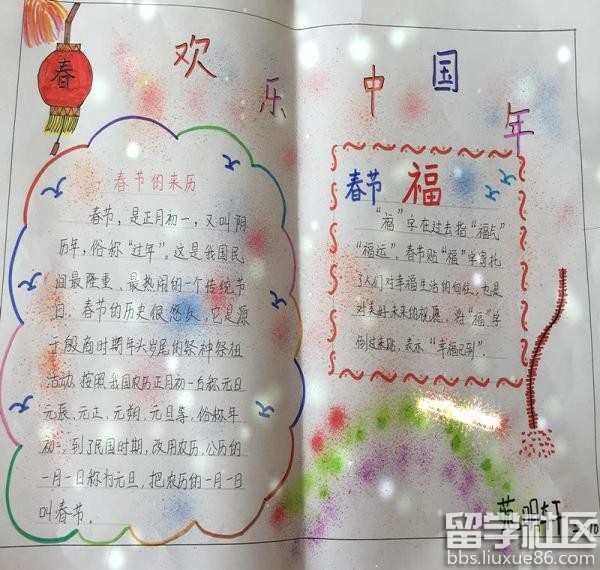 春
欢乐中国年
春节的来历
春节,是正月初一,又叫阴
历年,俗称“过年”。这是我国民
间最隆重、最热闹的一个传统节
日。春节的历史很悠久,它是源
于殷商时期年头岁尾的祭神祭祖
活动。按照我国农历正月初一古称元旦
元辰、元正、元朔、元旦等,俗称年
初一,到了民国时期,改用农历,公历的
一月一日称为元旦,把农历的一月一日
叫春节。
春节 福
“福”字在过去指“福气”
“福运”。春节贴“福”字寄托
了人们对幸福生活的向往,也是
对美好未来的祝愿。将“福”字
倒过来贴,表示“幸福已到”。
明轩
留学社区
bbs.liuxue86.com